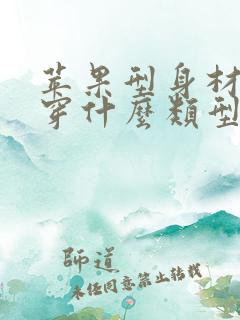 苹果型身材
穿什麼類型
師道
未經同意禁止轉載